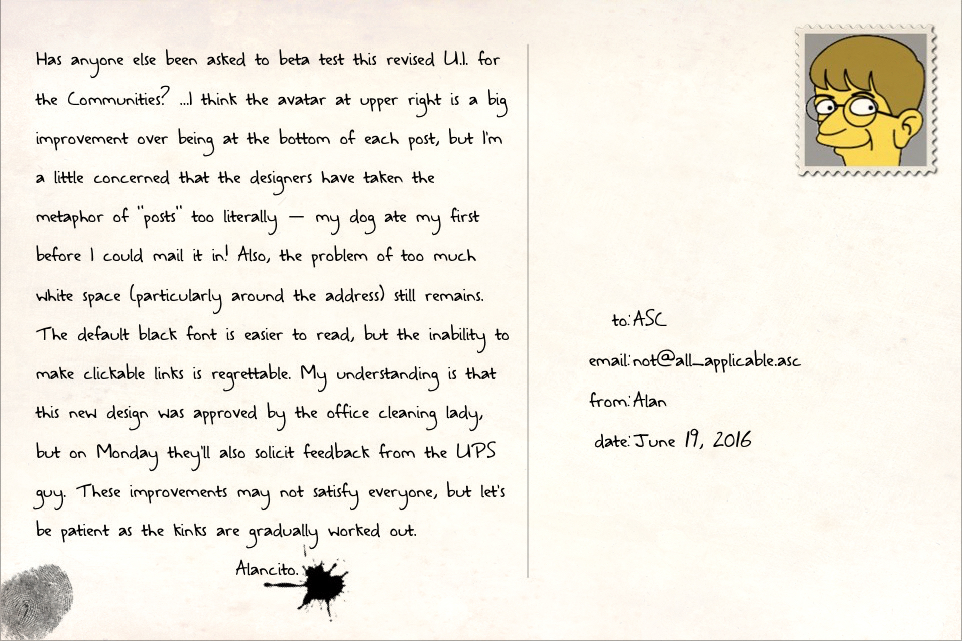 Has anyone else been asked to beta test this revised U.I. for
the Communities? ...I think the avatar at upper right is a big
improvement over being at the bottom of each post, but I'm
a little concerned that the designers have taken the
metaphor of "posts" too literally — my dog ate my first
before I could mail it in! Also, the problem of too much
white space (particularly around the address) still remains.
The default black font is easier to read, but the inability to
make clickable links is regrettable. My understanding is that
this new design was approved by the office cleaning lady,
but on Monday they'll also solicit feedback from the UPS
guy. These improvements may not satisfy everyone, but let's
be patient as the kinks are gradually worked out.
Alancito.
to: ASC
email: not@all_applicable.asc
from: Alan
date: June 19, 2016